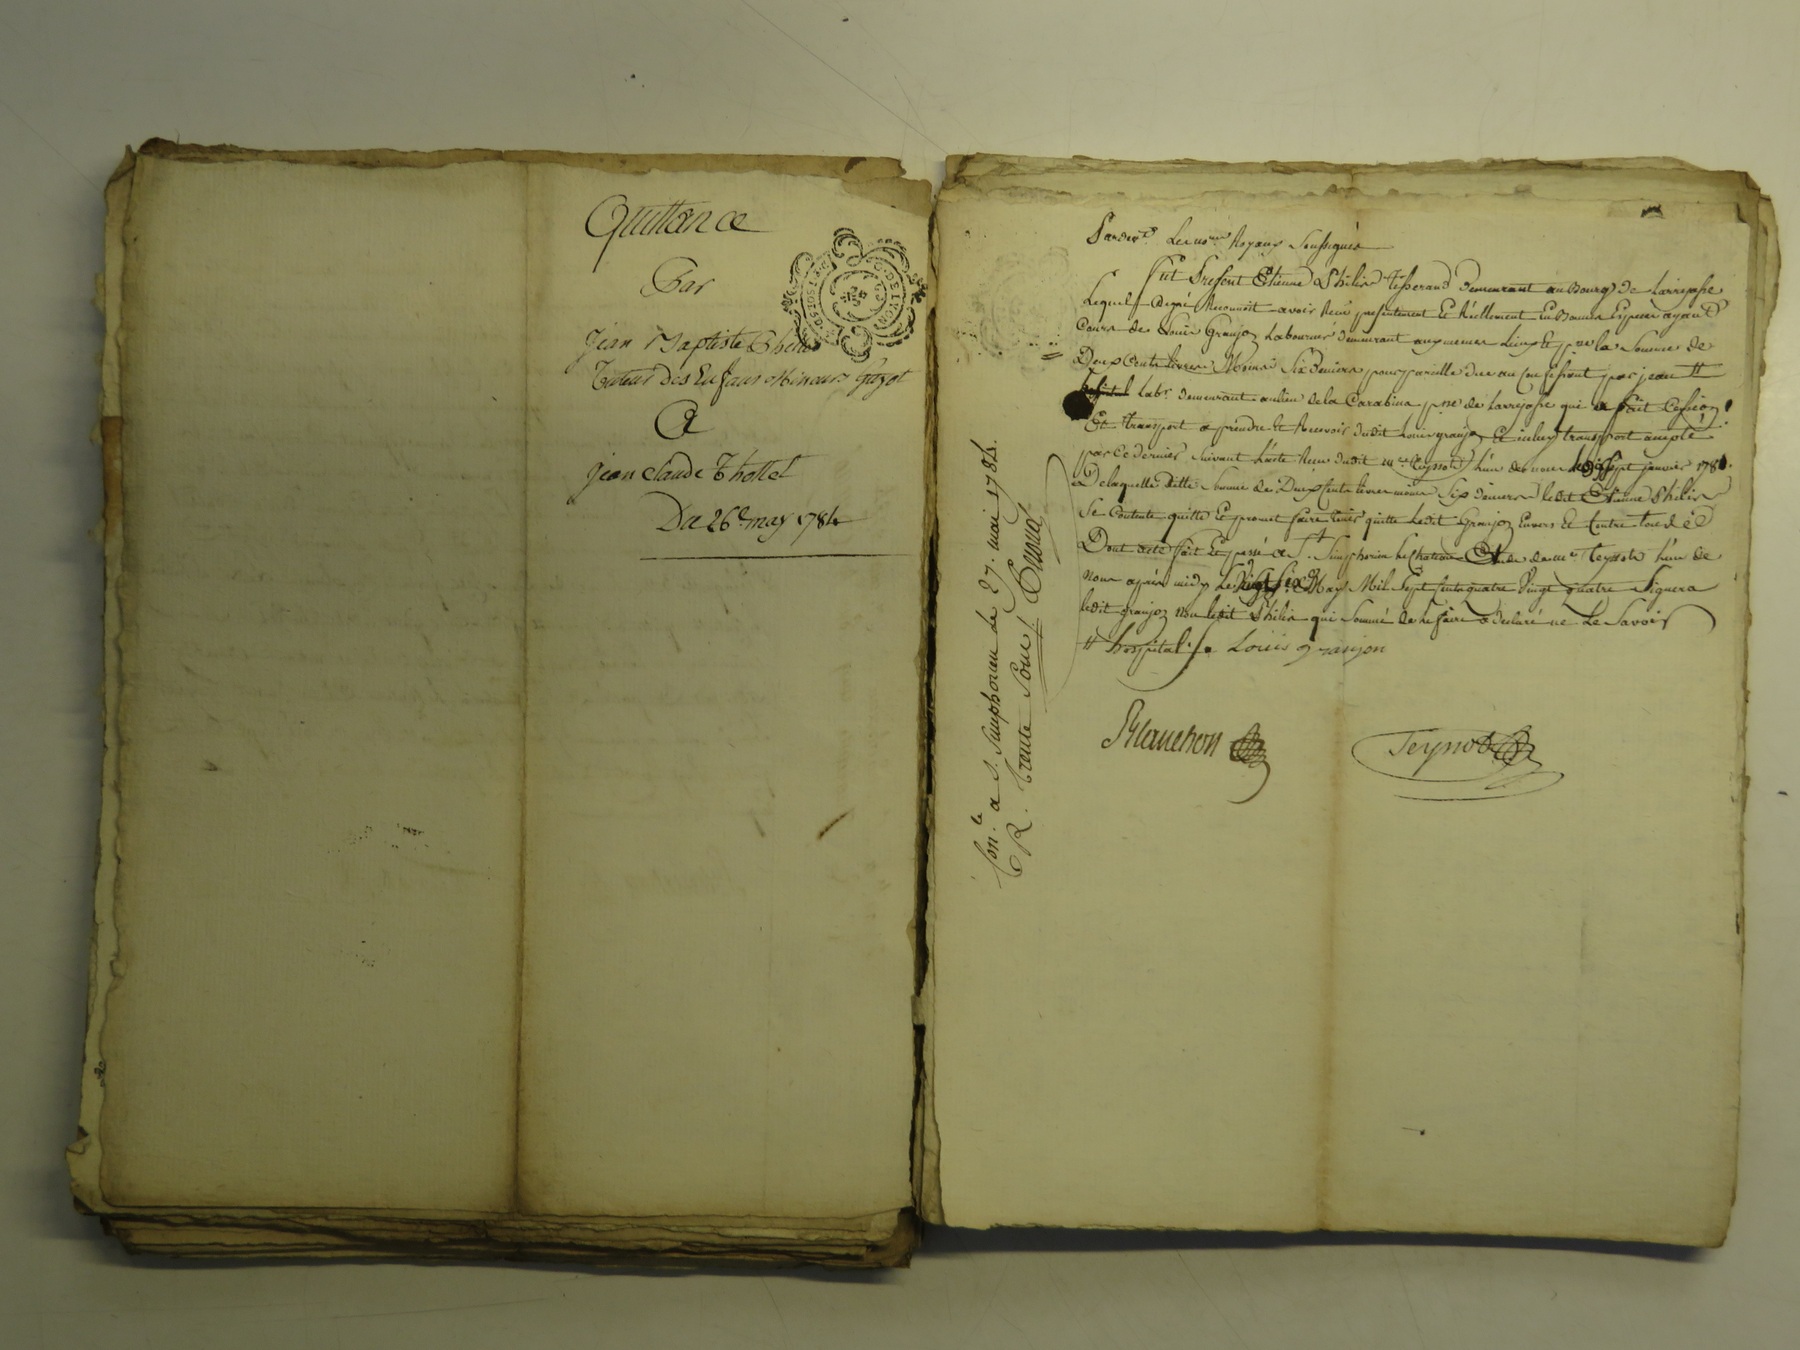 Quittance
Par
Jean Baptiste Thollet
Tuteur des Enfans Mineurs Guyot
A
jean claude Thollet
Du 26e may 1784
Pardevt. Les nores. Royaux Soussignés
fut Present Etienne Philis Tisserand demeurant au Bourg de Larrajasse
Lequel degré Reconnoit avoir Reçu presentement Et Réellement En Bonnes Especes ayant
Cours de Louis Granjon Laboureur demeurant aux memes Lieu et psse la Somme de
Deux Cents livres Moins Six Deniers pour pareille due au Confessant par jean #
Labr. demeurant au lieu de la Carabina psse de Larrajasse qui a fait Cession
Et transport a prendre Et Recevoir dudit Louis granjon Et icelui transport accepté
par ce dernier Suivant L'acte Reçu dudit me Teyssot L'un des nores le dix Sept janvier 178
De laquelle ditte Somme de Deux Cents livres moins Six deniers ledit Etienne Philis
Se Contente quitte Et promet faire tenir quitte Ledit Granjon Envers Et Contre tous
Dont acte fait Et passé a St. Simphorien le chateau Etude de me Teyssot L'un de
Nous après midy Le vingt Six May Mil Sept Cents quatre Vingt quatre Signera
ledit granjon Non ledit Philis qui Sommé de le faire a declaré ne Le Savoir
# hospital /. Louis granjon
Blanchon Teyssot
Conle. a S. Simphorien le 27. mai 1784.
R. trente Sous /.